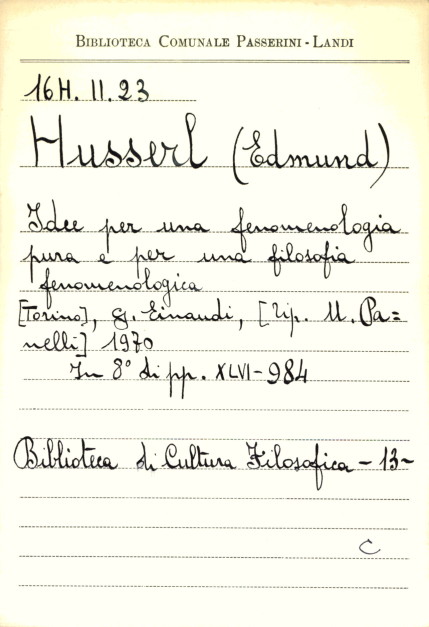 BIBLIOTECA COMUNALE PASSERINI-LANDI
16H. II. 23
Husserl (Edmund)
Idee per una fenomenologia
pura e per una filosofia
fenomenologica
[Torino], G. Einaudi, [Tip. U. Pa=
nelli] 1970
In 8° di pp. XLVI-984
Biblioteca di Cultura Filosofica - 13-
C